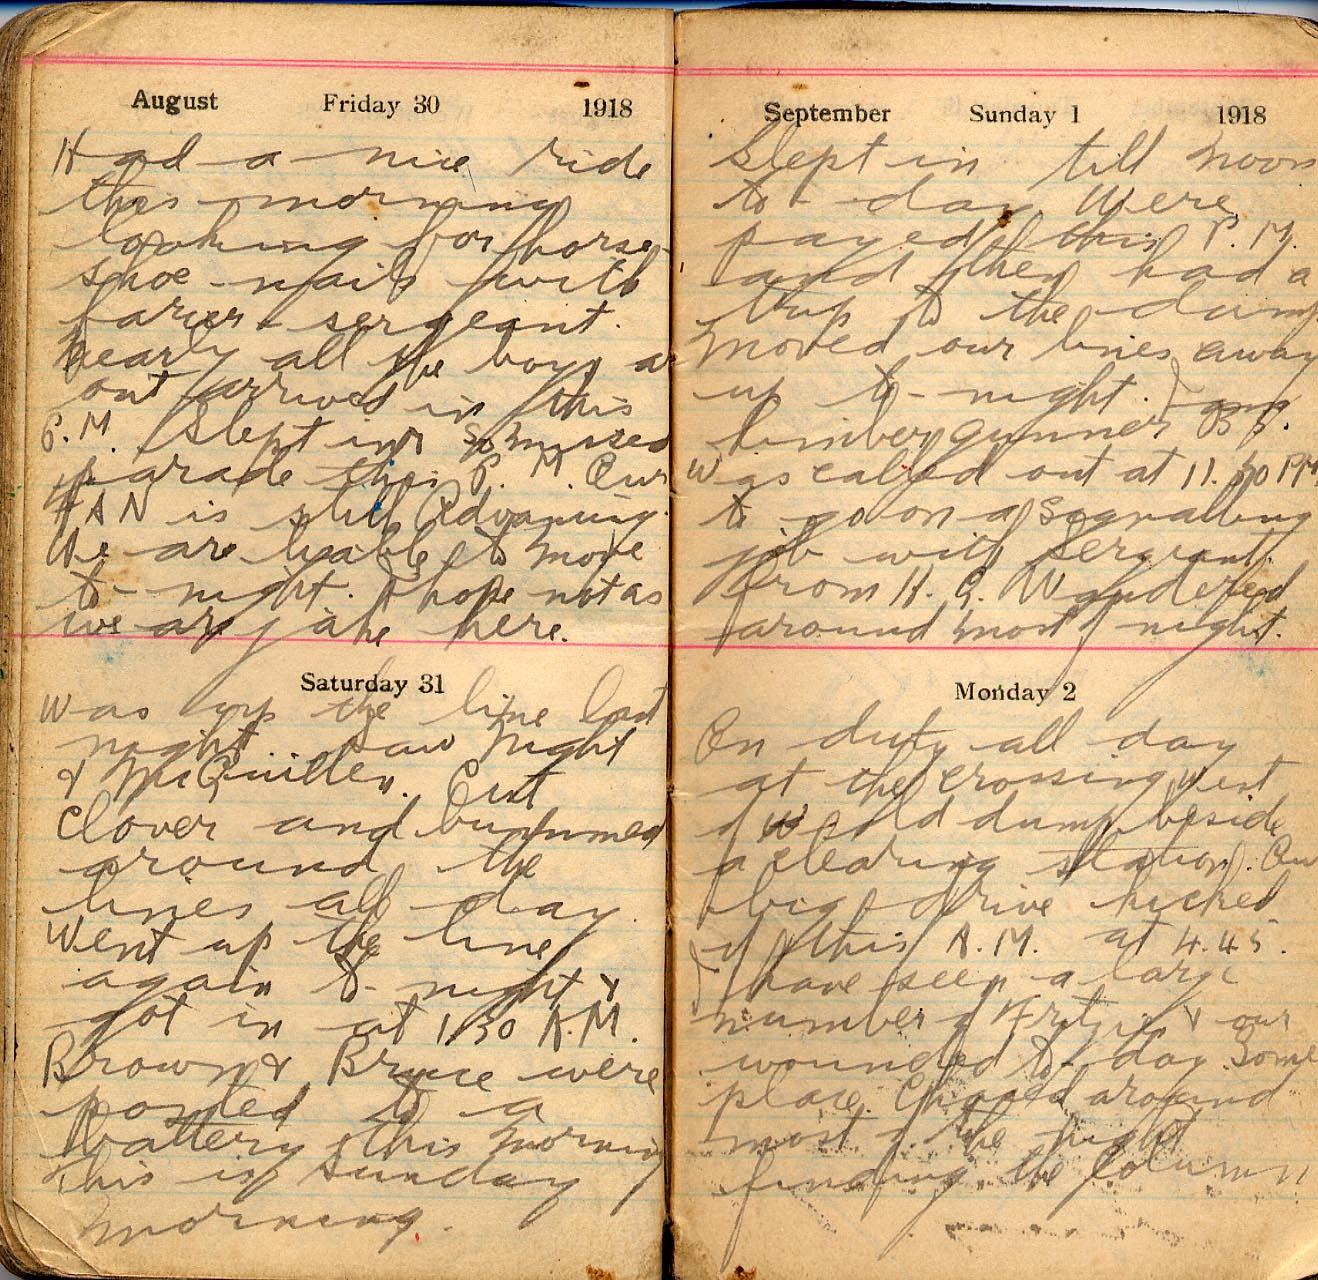 August Friday 30 1918
Had a nice ride
this morning
looking for horse-
shoe-nails with
farier-sergeant.
Nearly all the boys a
out arrived in this
P.M. Slept in & so missed
parade this P. M. Our
is still Advancing.
We are liable to move
to-night. I hope not as
we are jake here.
Saturday 31
Was up the line last
night. Saw Night
& McQuillen. Cut
clover and bummed
around the
lines all day.
Went up the line
again to-night &
got in at 1.30 A.M.
Brown & Bruce were
posted to a
battery this morning
This is Sunday
morning.
September Sunday 1 1918
Slept in till noon
to-day. Were
payed this P.M.
and then had a
trip to the dump
Moved our lines away
up to-night. I am
limber gunner B S.
Was called out at 11.30 PM
to go on a Signalling
job with Sergeant
from H. Q. Wandered
around most of night.
Monday 2
On duty all day
at the crossing west
of old dump beside
a clearing station. Our
big drive kicked
of this A.M. at 4.45.
I have seen a large
number of Fritzies & our
wounded to-day. Some
place. Chased around
most of the night
finding the Column